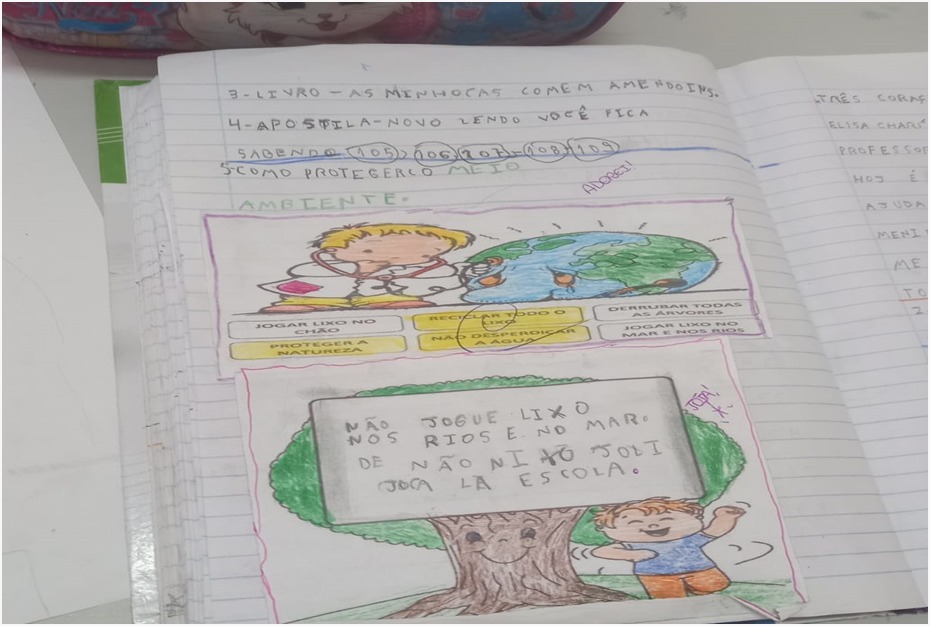 3-LIVRO - AS MINHOCAS COMEM AMENDOINS.
4-APOSTILA-NOVO LENDO VOCÊ FICA
SABENDO 105, 106, 107- 108, 109
5-COMO PROTEGER O MEIO
AMBIENTE.
ADOREI!
JOGAR LIXO NO CHÃO
RECICLAR TODO O LIXO
DERRUBAR TODAS AS ÁRVORES
PROTEGER A NATUREZA
NÃO DESPERDIÇAR A ÁGUA
JOGAR LIXO NO MAR E NOS RIOS
NÃO JOGUE LIXO
NOS RIOS E NO MAR.
DE NÃO NI JOLI
JOCA LA ESCOLA.
JOIA!
TRÊS
ELISA
HOJ É
AJUDA
MENI
ME
TO
2